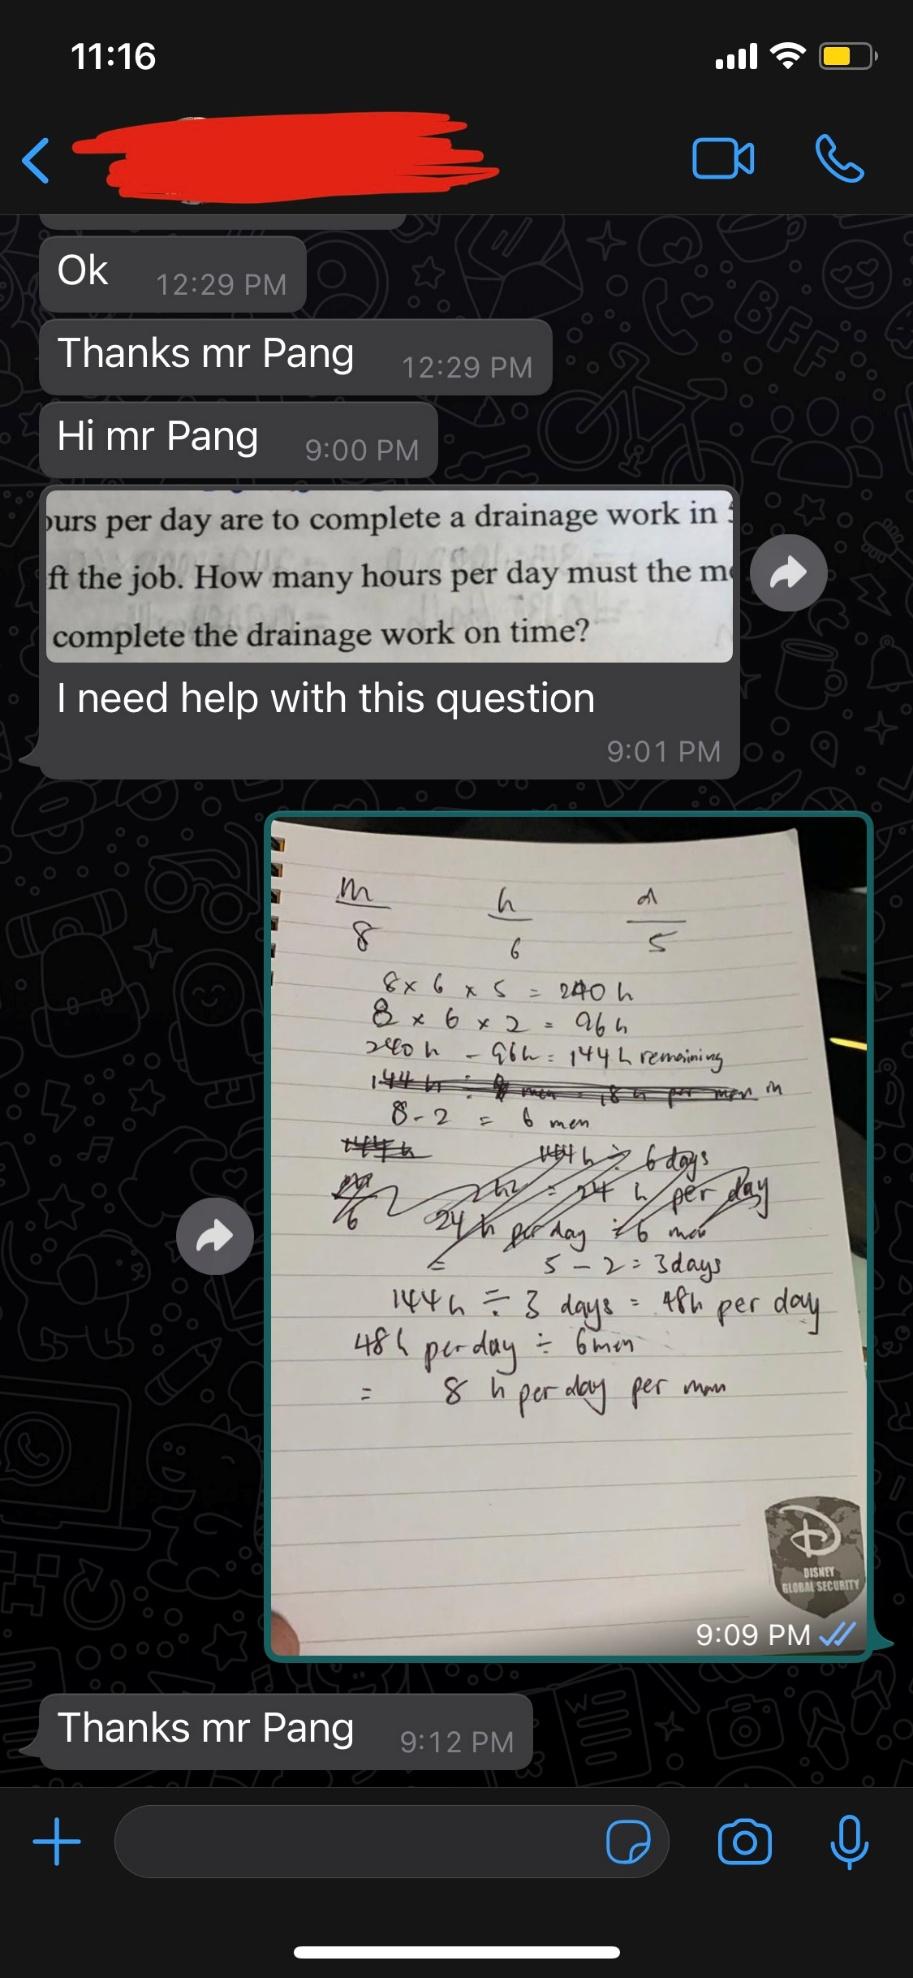 11:16
Ok 12:29 PM
Thanks mr Pang 12:29 PM
Hi mr Pang 9:00 PM
ours per day are to complete a drainage work in 5
ft the job. How many hours per day must the me
complete the drainage work on time?
I need help with this question
9:01 PM
m h d
8 6 5
8 x 6 x 5 = 240 h
8 x 6 x 2 = 96 h
240 h - 96h = 144 h remaining
144 h ÷ 8 men = 18 h per man
8 - 2 = 6 men
144 h
144 h ÷ 6 days
= 24 h per day
6 24 h per day ÷ 6 men
=
5 - 2 = 3 days
144 h ÷ 3 days = 48h per day
48 h per day ÷ 6 men
= 8 h per day per man
D
DISNEY
GLOBAL SECURITY
9:09 PM
Thanks mr Pang 9:12 PM